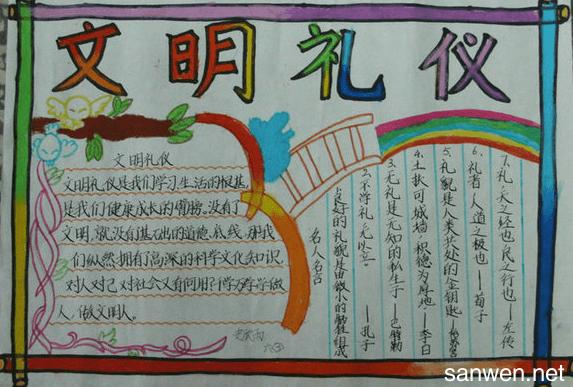 文明礼仪
文明礼仪
文明礼仪是我们学习、生活的根基,
是我们健康成长的臂膀。没有了
文明,就没有基础的道德底线,那我
们纵然拥有高深的科学文化知识
对人对己对社会又有何用?学做
人,做文明人。
名人名言
良好的礼貌是由微小的牺牲组成
2.不学礼,无以立。——孔子
3.无礼是无知的私生子——巴特勒
4.土扶可城墙 积德为厚地——李白
5.礼貌是人类共处的金钥匙
6.礼者,人道之极也——荀子
7.礼,天之经也,民之行也——左传
sanwen.net